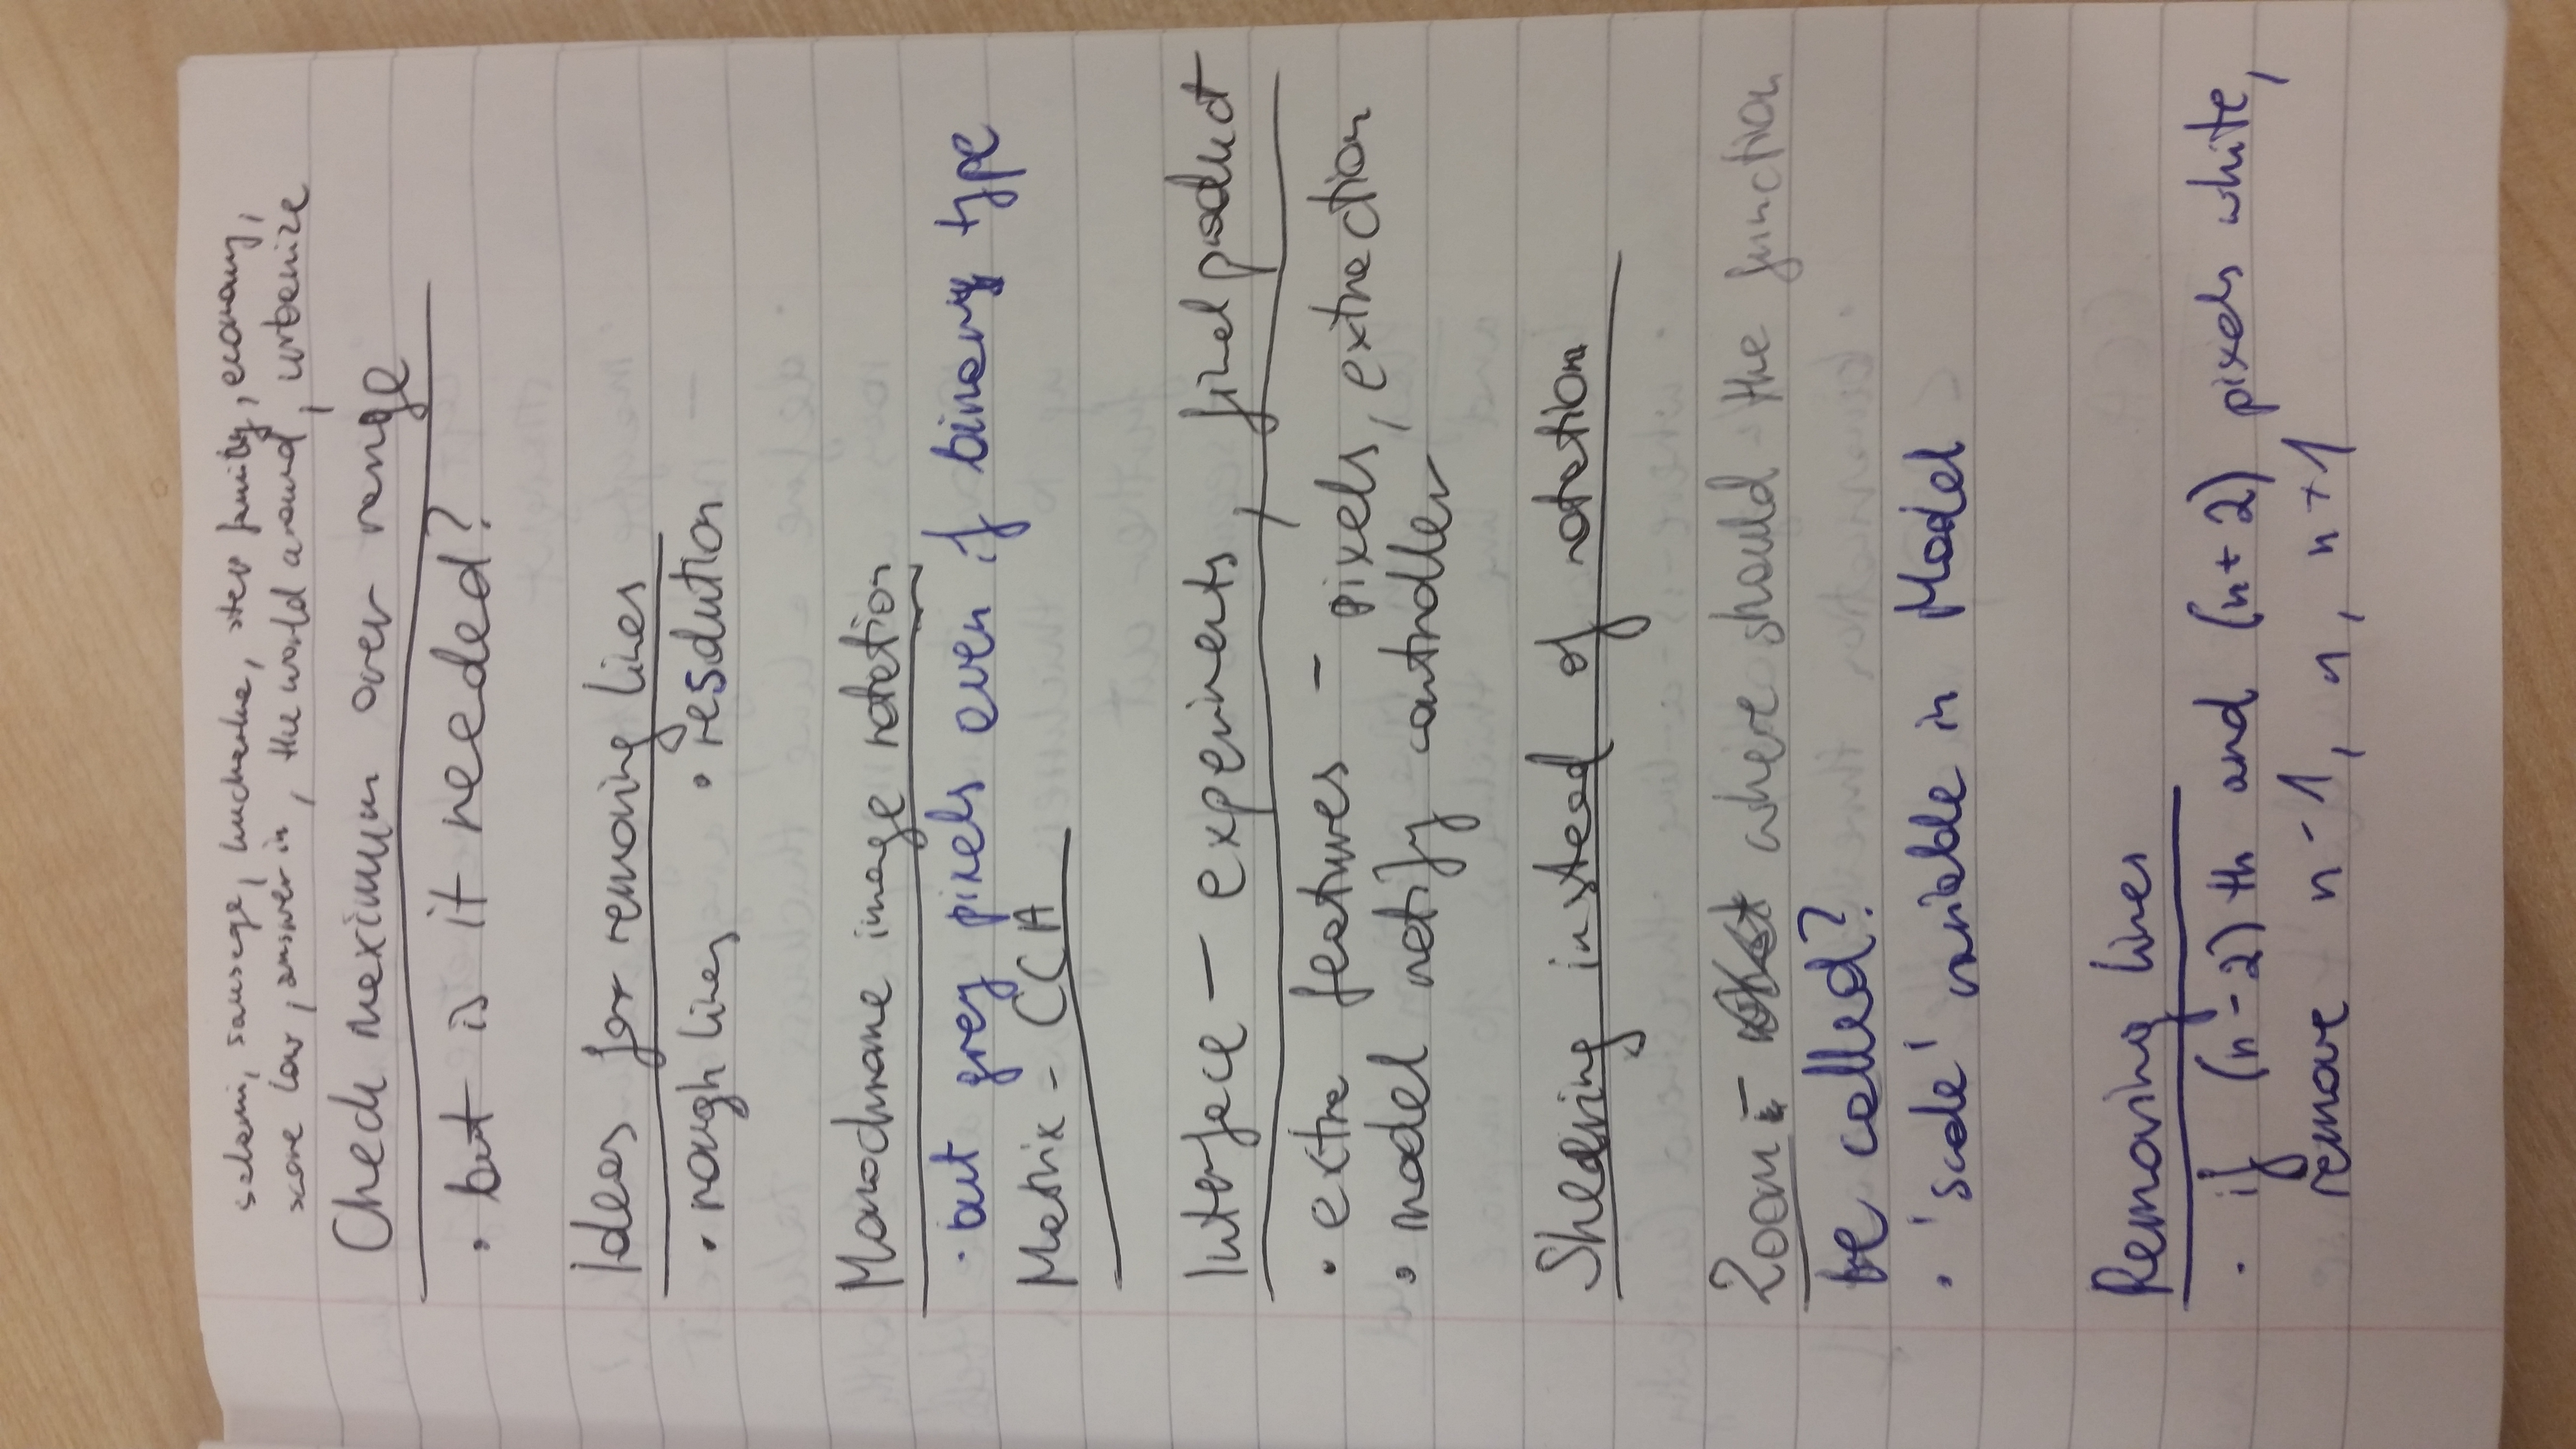 salami, sausage, kucharka, step family, economy,
score low, answer in, the world around, urbanize
Check maximum over range
· but is it needed?
Ideas for removing lines
· rough lines · resolution
Monochrome image rotation
· but grey pixels even if binary type
Matrix - CCA
Interface - experiments, final product
· extra features - pixels, extraction
· model notify controller
Shearing instead of rotation
Zoom - where should the function
be called?
· 'scale' variable in Model
Removing lines
· if (n-2)th and (n+2) pixels white,
remove n-1, n, n+1